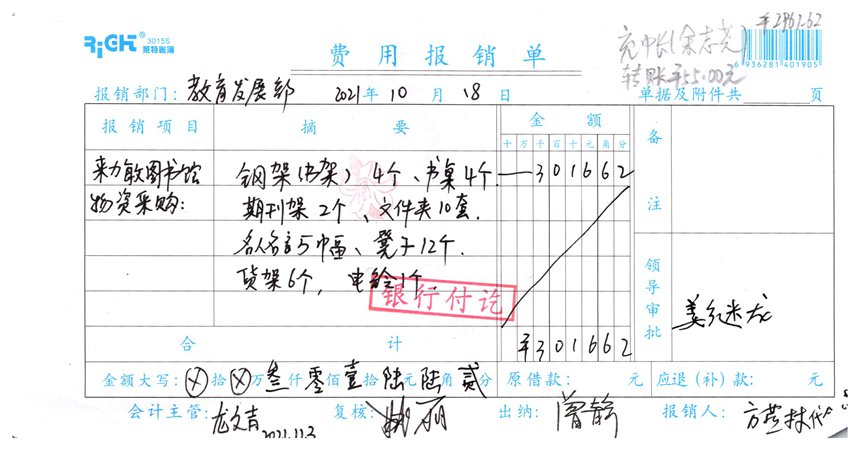 RiGHT 3015S 莱特账簿
费用报销单
¥2961.62
充巾长(余志尧)
转账¥55.00元
6 936281 401905
报销部门：教育发展部 2021年10月18日 单据及附件共 页
报销项目 摘要 金额 备注
十万千百十元角分
图书馆 钢架(书架)4个、书桌4个. 301662
物资采购： 期刊架2个、文件夹10套.
名人名言5巾畐、凳子12个.
货架6个，电铃1个
银行付讫
领导审批
合计 ¥301662
金额大写：⊗拾⊗万叁仟零佰壹拾陆元陆角贰分 原借款： 元 应退(补)款： 元
会计主管：龙文吉 复核： 丽 出纳： 报销人：
2021.11.3